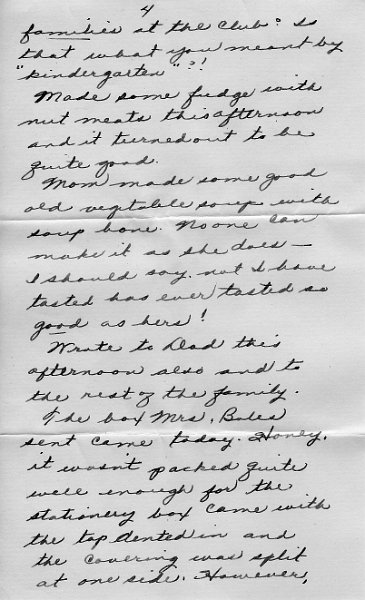 4
families at the Club? Is
that what you meant by
"kindergarten"?!
Made some fudge with
nut meats this afternoon
and it turned out to be
quite good.
Mom made some good
old vegetable soup with
soup bone. No one can
make it as she does —
I should say, not I have
tasted has ever tasted so
good as hers!
Wrote to Dad this
afternoon also and to
the rest of the family.
The box Mrs. Boles
sent came today. Honey,
it wasn't packed quite
well enough for the
stationery box came with
the top dented in and
the covering was split
at one side. However,